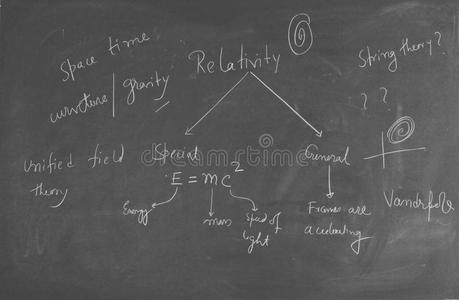 Space time
curvature | gravity
Relativity
String theory?
? ?
unified field
theory
Special
E = mc2
Energy
mass
Speed of
light
General
Frames are
accelerating
dreamstime